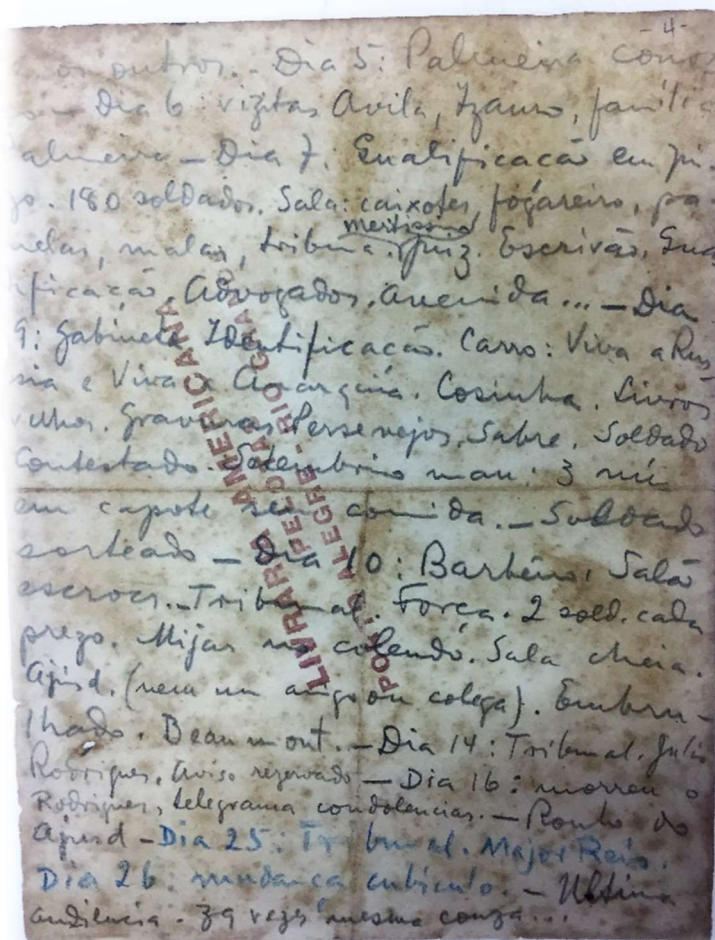 4-
os outros. - Dia 5: Palmeira
- Dia 6: vizitas Avila, Izauro, família
Palmeira - Dia 7. Qualificacão em
180 soldados. Sala: caixotes, fogareiro, pa-
nelas, malas, tribuna. juiz. Escrivão, Qua-
lificacão, Advogados, avenida... - Dia
9: Gabinete Identificacão. Carro: Viva a Rus-
sia e Viva a Anarquia. Cosinha. Livros
velhos. Gravuras Persevejos, Sabre. Soldado
Contestado. 3
em capote sem comida. - Soldado
sorteado - Dia 10: Barbeiro, Salão
escrocs. - Tribunal. Força. 2 sold. cada
prezo. Mijar no colendo. Sala cheia.
Ajusd. (nem um amigo ou colega). Embru-
lhado. Beaumont. - Dia 14: Tribunal. Julio
Rodrigues, aviso rezervado - Dia 16: morreu o
Rodrigues, telegrama condolencias. - do
Ajusd - Dia 25: Tribunal. Major Reis.
Dia 26: mudança cubiculo. - Ultima
audiencia. 39 vezes mesma couza...
LIVRARIA AMERICANA
PELOTAS - RIO GRANDE
PORTO ALEGRE